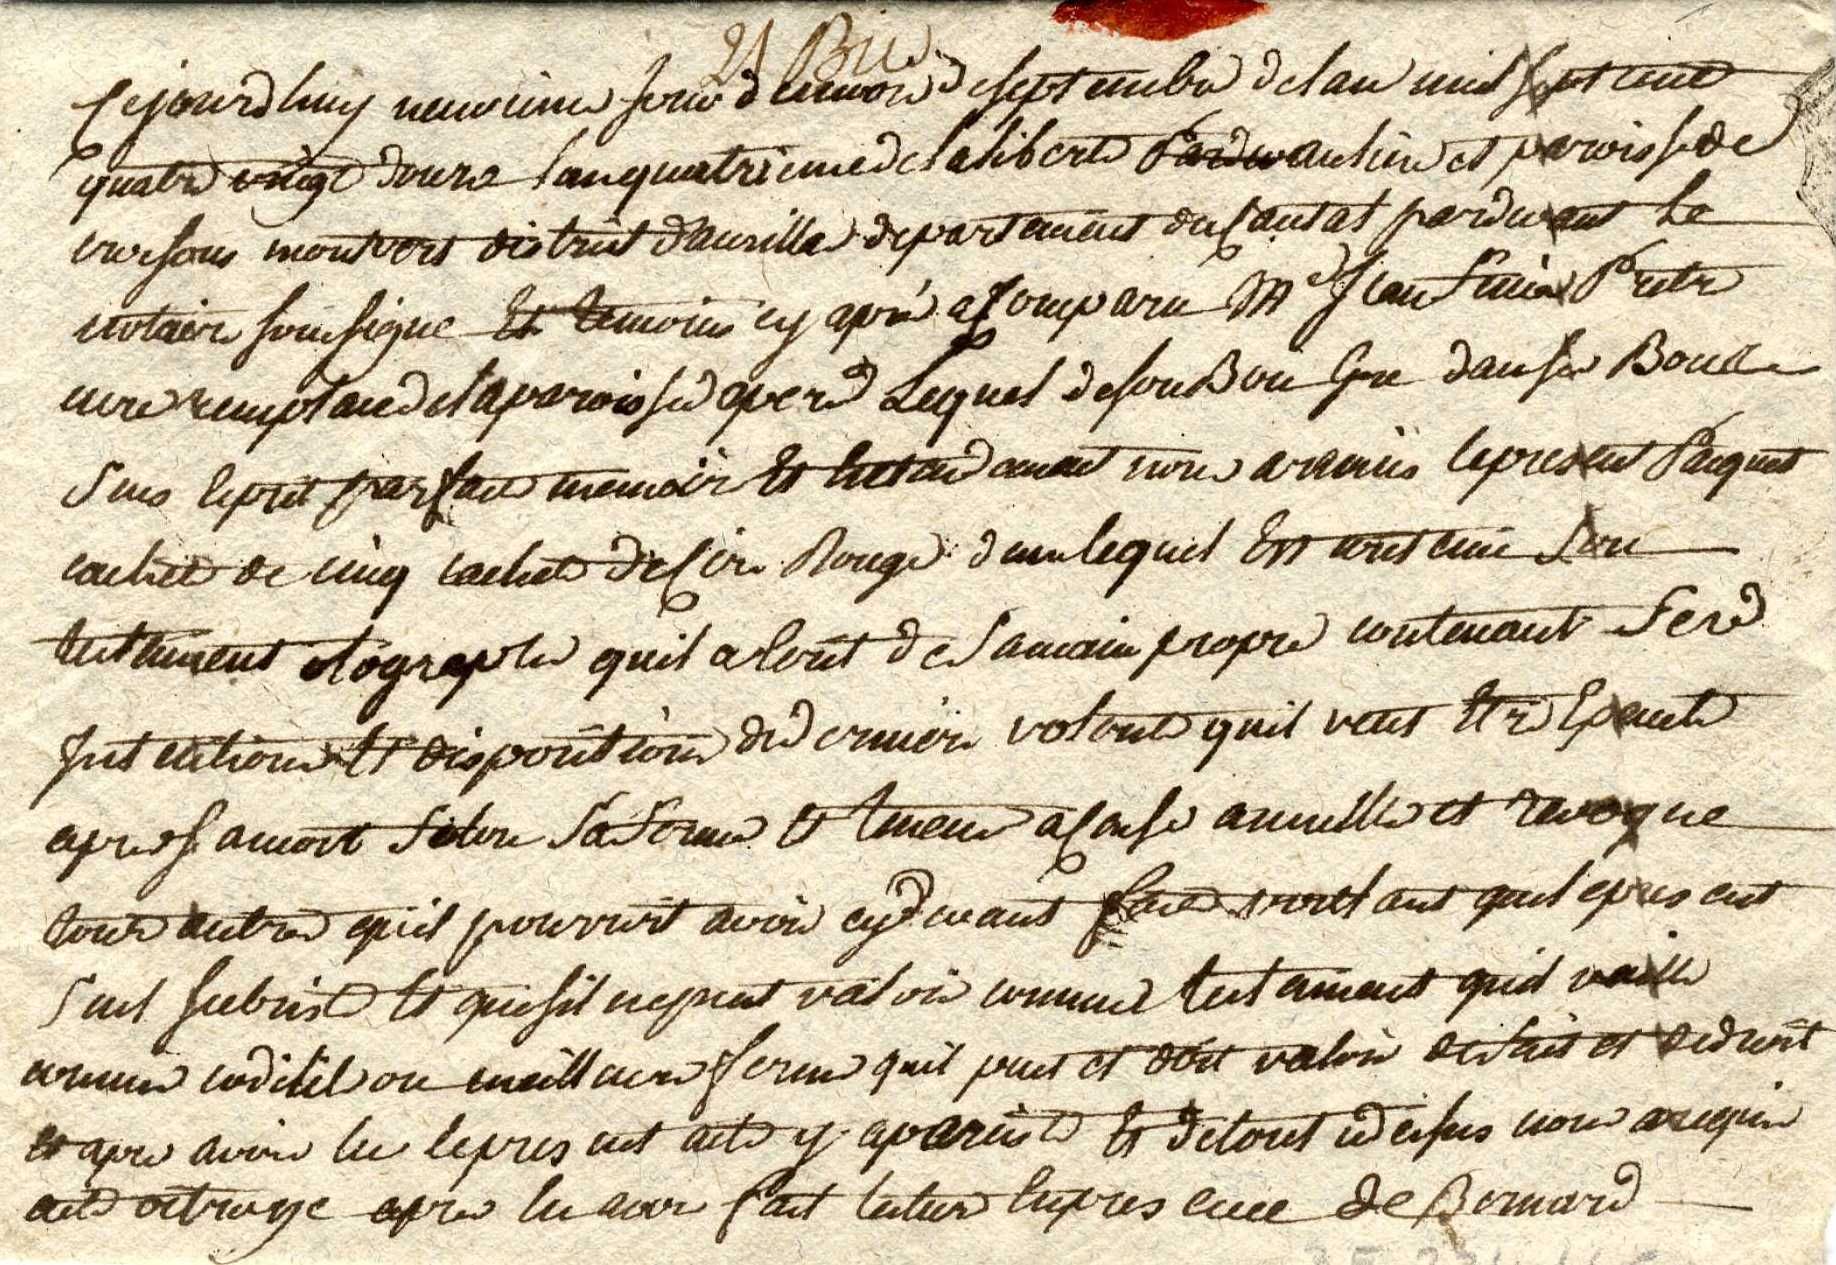 21 Bis
Cejourdhuy neuvieme jour du mois de septembre de lan mil sept cent
quatre vingt douze lan quatrieme de la liberté au lieu et paroisse de
monvert district daurillac departement du Cantal pardevant le
notaire soussigne et temoins cy apres a Comparu Me Jean pretre
cure de la paroisse lequel de son Bon Gre dans sa Bonne
sens esprit parfaite memoire et entendement nous a remis le present Paquet
cachete de cinq cachets de Cire Rouge dans lequel est contenu son
testament olographe quil a Ecrit de sa main propre contenant ses
Intentions et dispositions de derniere volonte quil veut etre Execute
apres sa mort selon sa forme et teneur a casse annulle et revoque
tous autres quil pourroit avoir cy devant fait voulant que le present
seul subsiste et que sil ne peut valoir comme testament quil vaille
comme codicile ou meilleure forme quil peut et doit valoir de fait et de droit
et apres avoir lu le present acte y a persisté et de tout cidessus nous a requis
acte octroyé apres lui avoir fait lecture En presence de Bernard